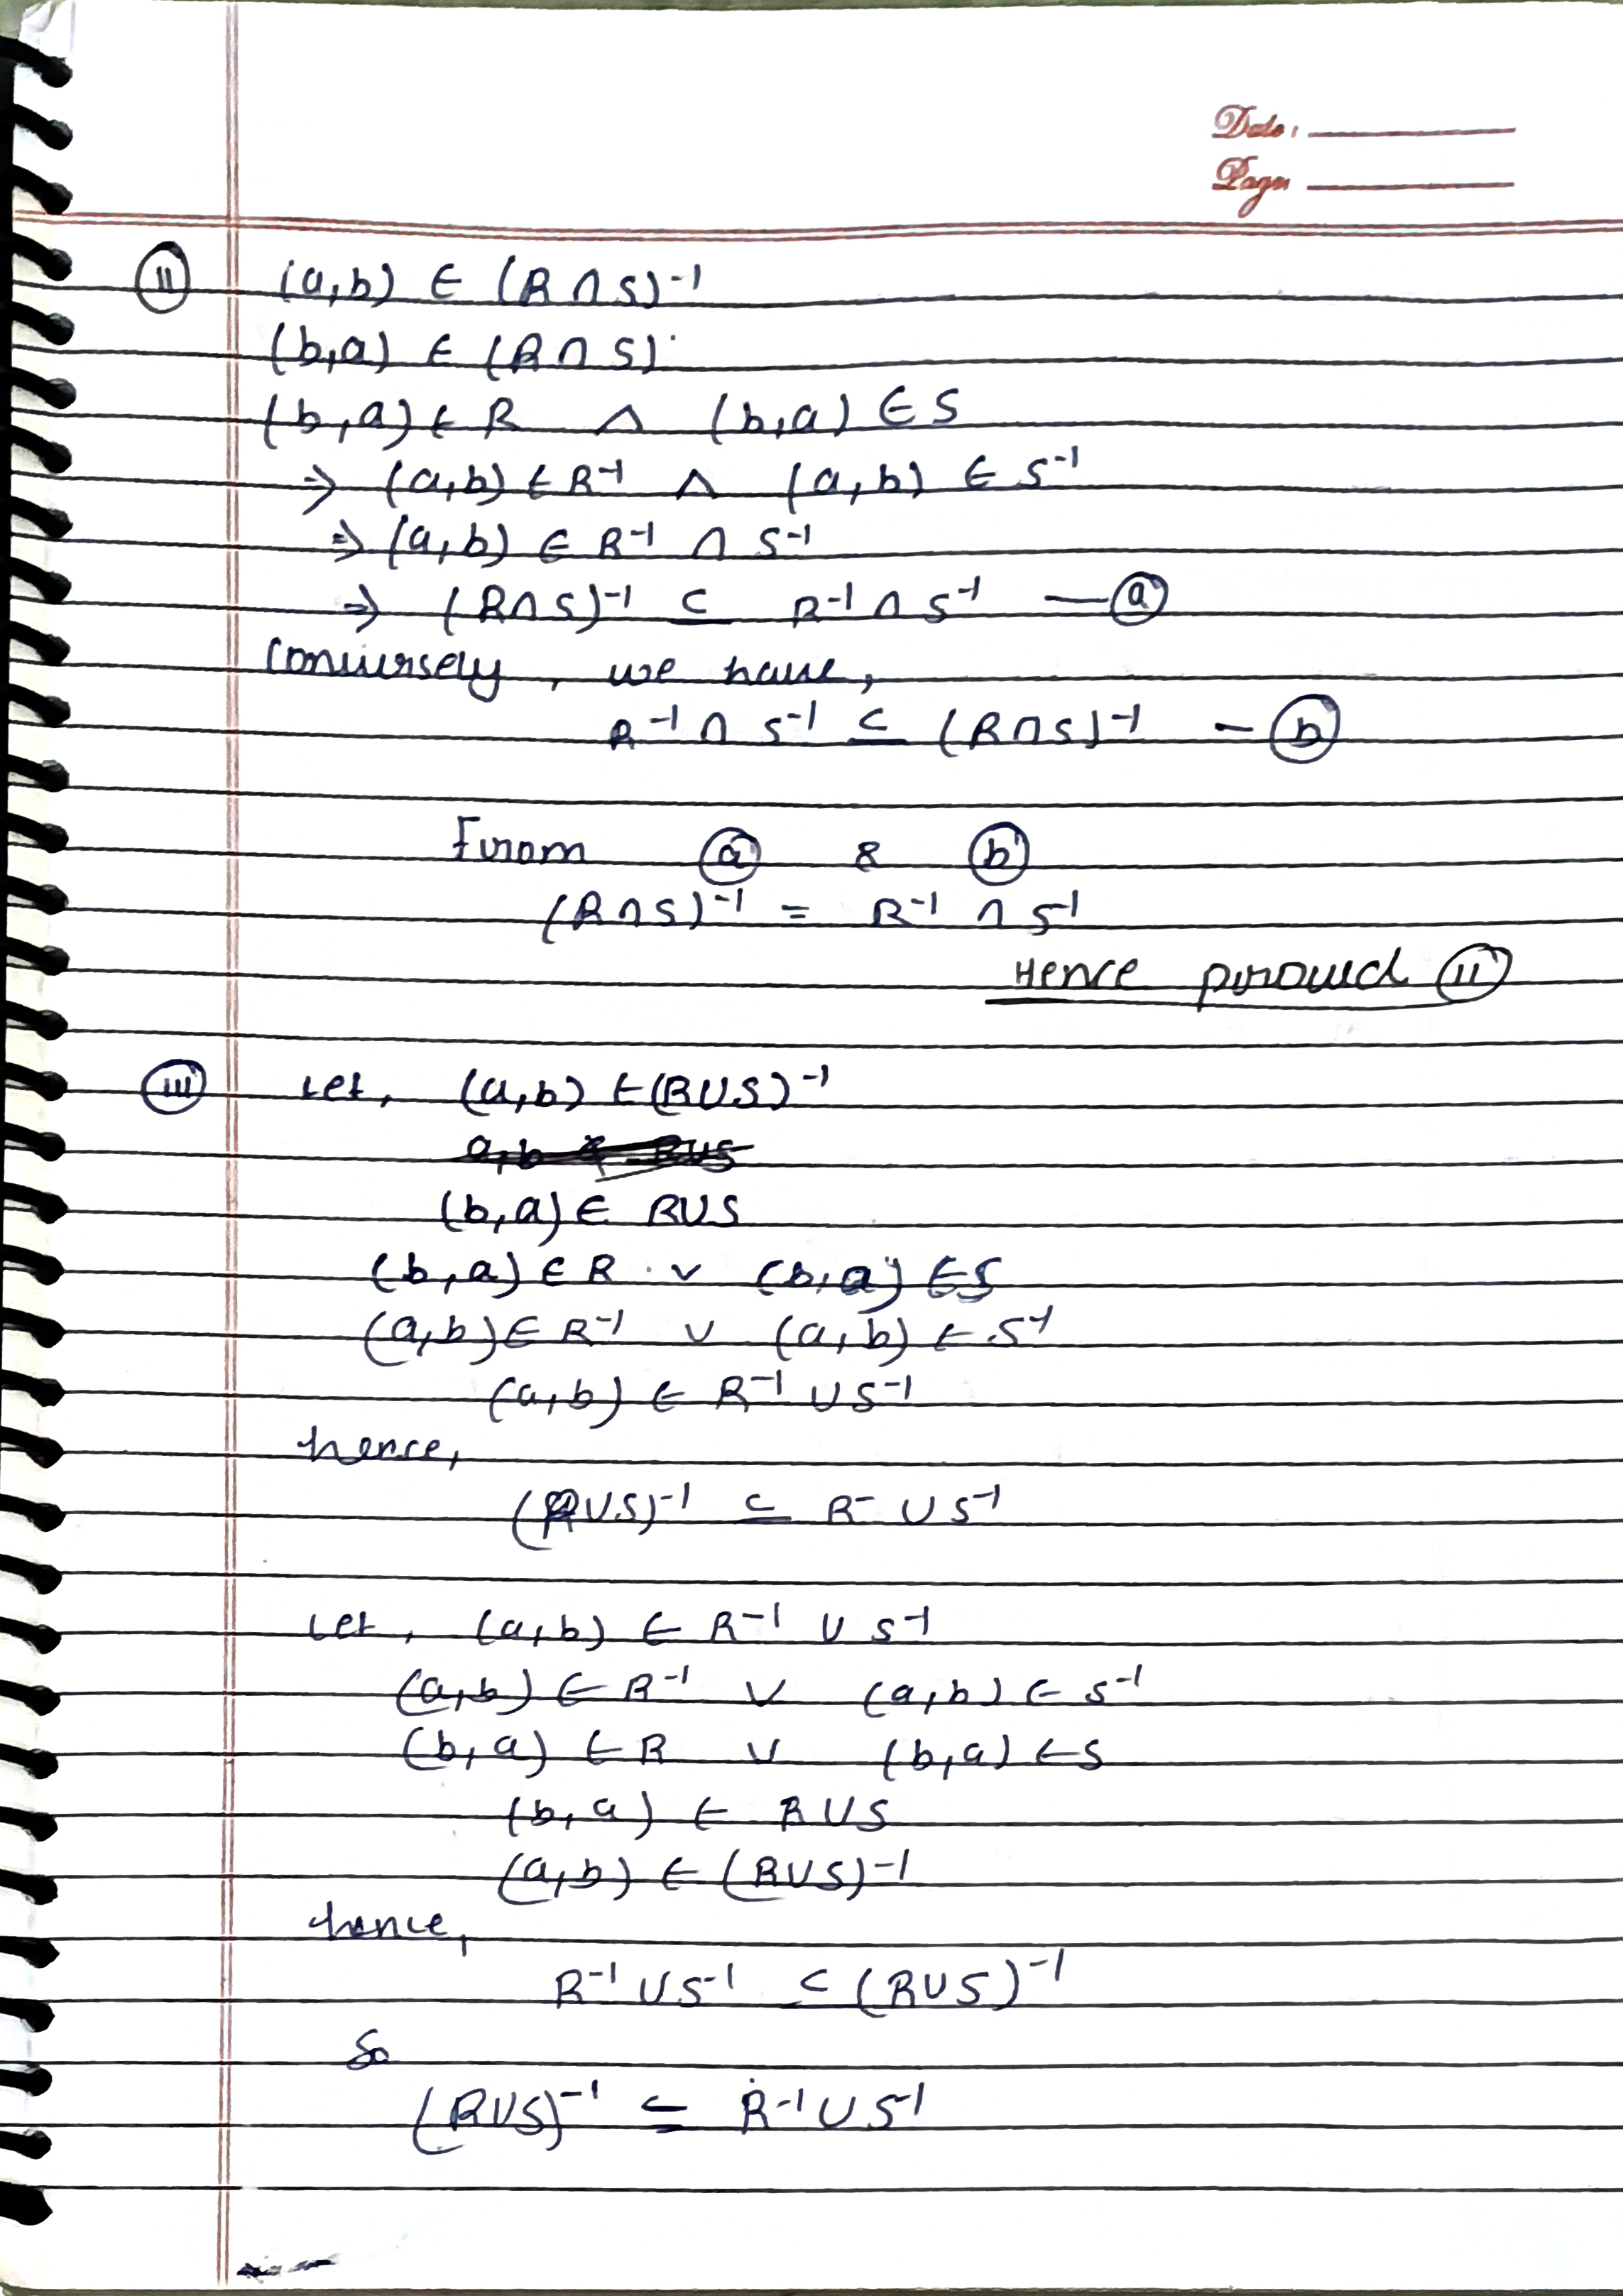 Date:
Page
(ii) (a,b) ∈ (R ∩ S)⁻¹
(b,a) ∈ (R ∩ S)
(b,a) ∈ R ∧ (b,a) ∈ S
⇒ (a,b) ∈ R⁻¹ ∧ (a,b) ∈ S⁻¹
⇒ (a,b) ∈ R⁻¹ ∩ S⁻¹
⇒ (R∩S)⁻¹ ⊆ R⁻¹ ∩ S⁻¹ — (a)
Conversely, we have,
R⁻¹ ∩ S⁻¹ ⊆ (R∩S)⁻¹ – (b)
From (a) & (b)
(R∩S)⁻¹ = R⁻¹ ∩ S⁻¹
Hence proved (ii)
(iii) Let, (a,b) ∈ (RUS)⁻¹
(b,a) ∈ RUS
(b,a) ∈ R ∨ (b,a) ∈ S
(a,b) ∈ R⁻¹ ∨ (a,b) ∈ S⁻¹
(a,b) ∈ R⁻¹ ∪ S⁻¹
hence,
(RUS)⁻¹ ⊆ R⁻ ∪ S⁻¹
Let, (a,b) ∈ R⁻¹ ∪ S⁻¹
(a,b) ∈ R⁻¹ ∨ (a,b) ∈ S⁻¹
(b,a) ∈ R ∨ (b,a) ∈ S
(b,a) ∈ R∪S
(a,b) ∈ (R∪S)⁻¹
hence,
R⁻¹ ∪ S⁻¹ ⊆ (RUS)⁻¹
So
(RUS)⁻¹ ⊆ R⁻¹ ∪ S⁻¹